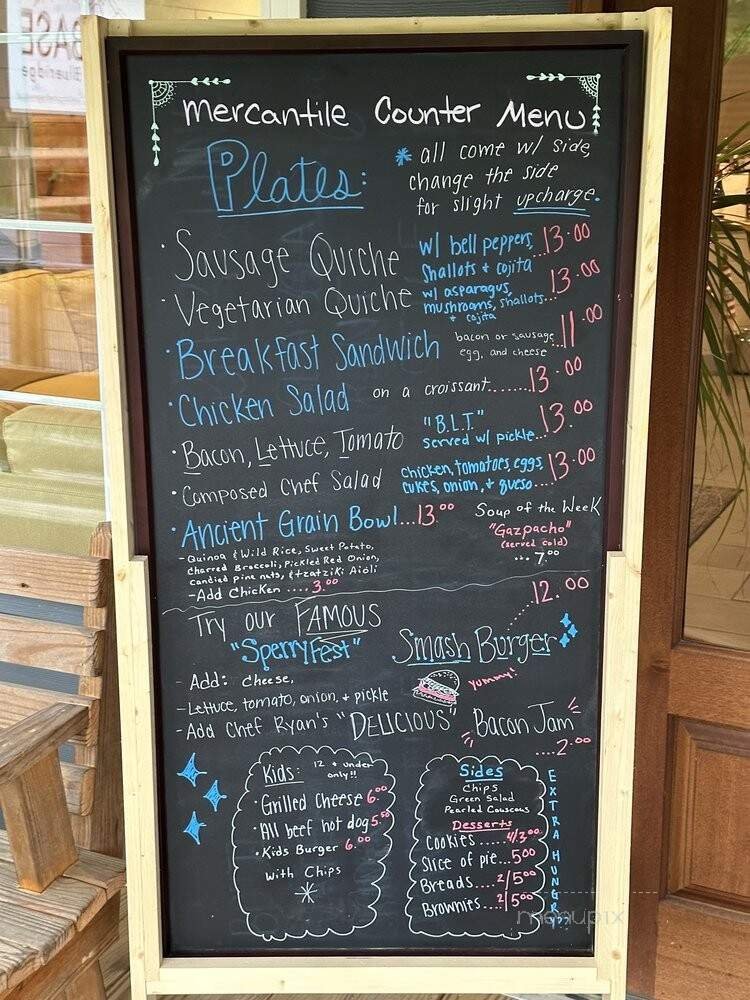 BASE
Blueridge
Mercantile Counter Menu
Plates:
* all come w/ side,
change the side
for slight upcharge.
· Sausage Quiche w/ bell peppers, shallots + cojita 13.00
· Vegetarian Quiche w/ asparagus, mushrooms, shallots... + cojita 13.00
· Breakfast Sandwich bacon or sausage egg, and cheese ...11.00
· Chicken Salad on a croissant.......13.00
· Bacon, Lettuce, Tomato "B.L.T." served w/ pickle...13.00
· Composed Chef Salad chicken, tomatoes, eggs, cukes, onion, + queso...13.00
· Ancient Grain Bowl...13.00
- Quinoa & Wild Rice, Sweet Potato,
Charred Broccoli, Pickled Red Onion,
candied pine nuts, & tzatziki Aioli
- Add Chicken ....3.00
Soup of the Week
"Gazpacho"
(served cold)
...7.00
Try our FAMOUS
"SperryFest" Smash Burger ......12.00
Yummy!
- Add: cheese,
- Lettuce, tomato, onion, + pickle
- Add Chef Ryan's "DELICIOUS" Bacon Jam
....2.00
Kids: 12 + under only!!
· Grilled Cheese 6.00
· All beef hot dog 5.50
· Kids Burger 6.00
with Chips
Sides
Chips
Green Salad
Pearled Couscous
Desserts
Cookies.....4/3.00
Slice of pie...5.00
Breads....2/5.00
Brownies...2/5.00
EXTRA HUNGRY
menupix